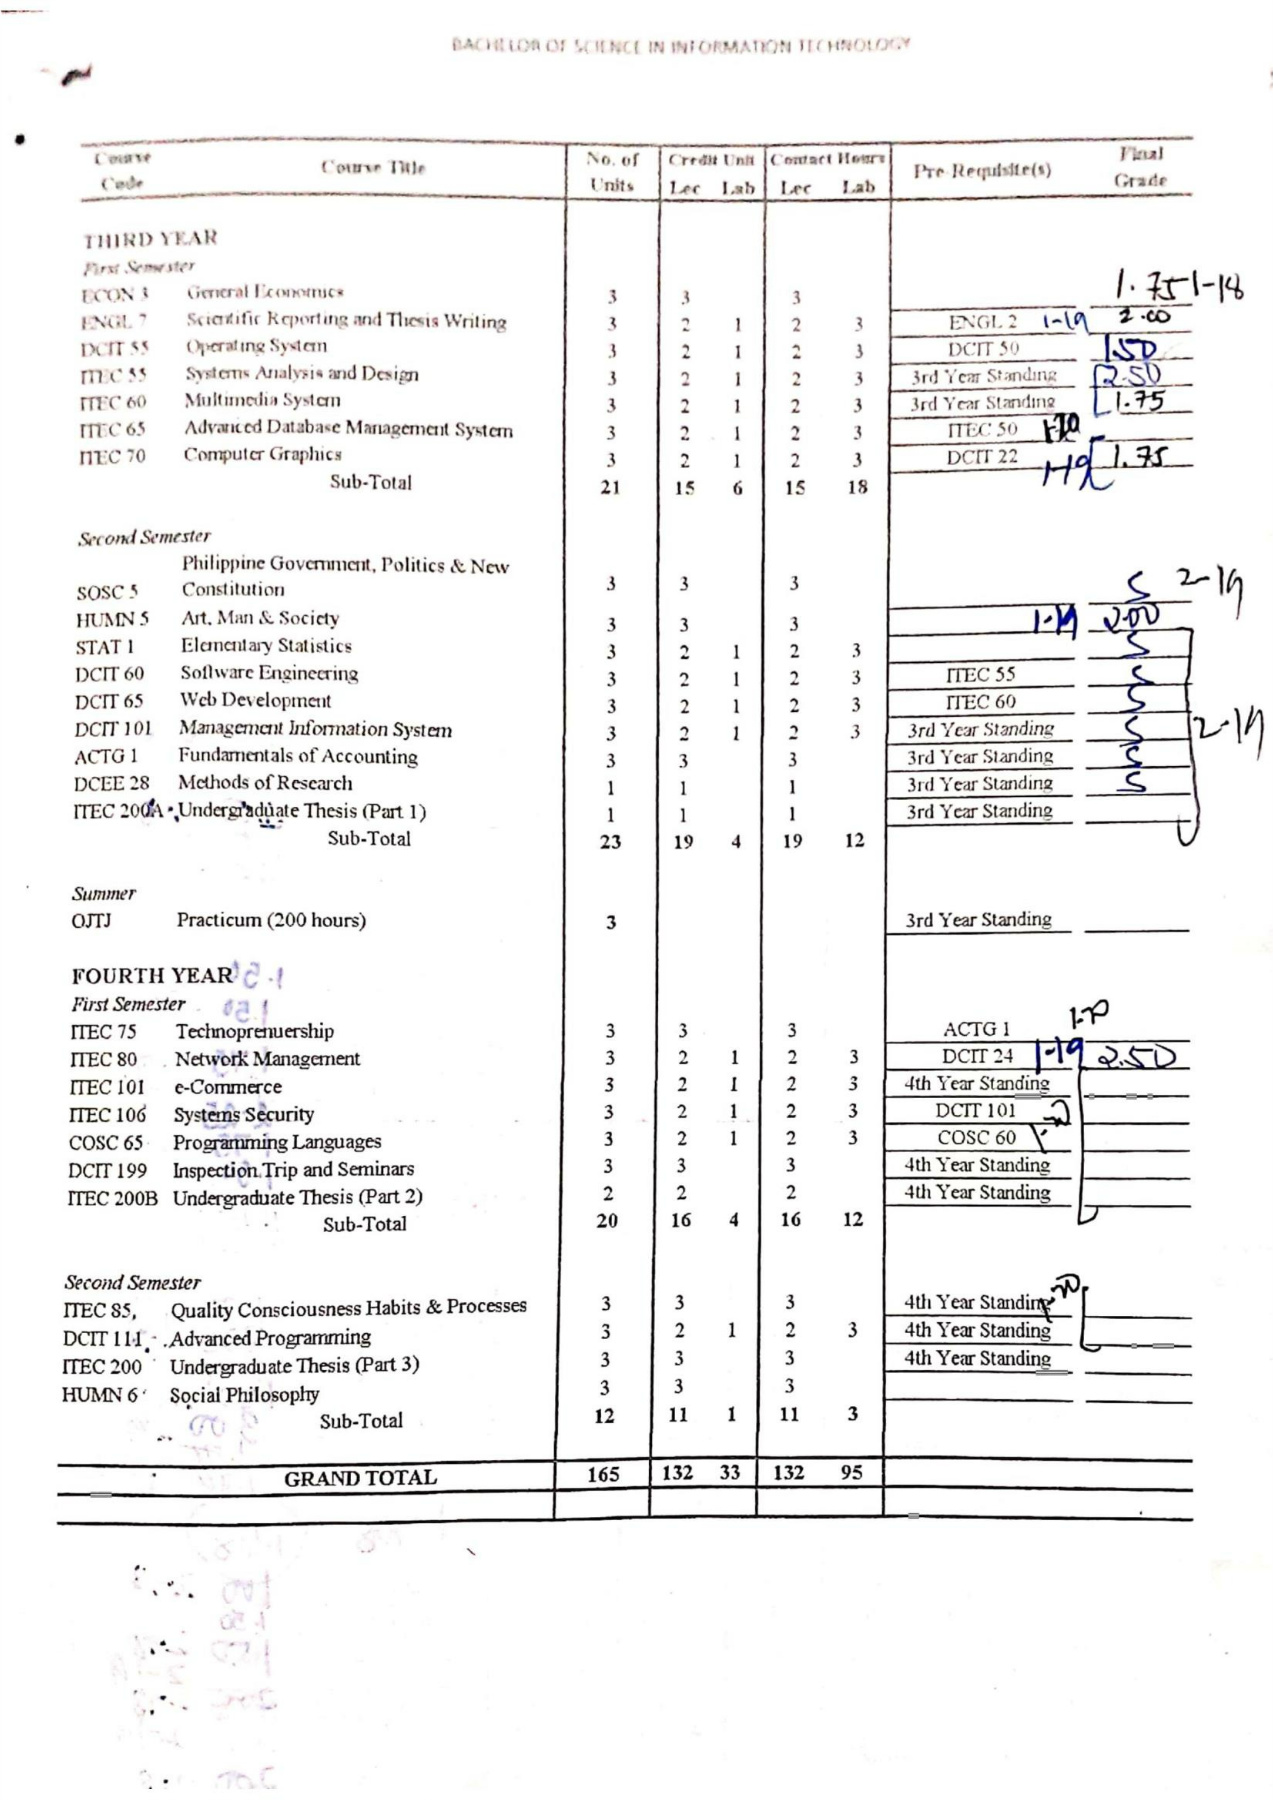 BACHELOR OF SCIENCE IN INFORMATION TECHNOLOGY
Course Code Course Title No. of Units Credit Unit Lec Lab Contact Hours Lec Lab Pre-Requisite(s) Final Grade
THIRD YEAR
First Semester
ECON 3 General Economics 3 3 3 1.75 1-18
ENGL 7 Scientific Reporting and Thesis Writing 3 2 1 2 3 ENGL 2 1-19 2.00
DCIT 55 Operating System 3 2 1 2 3 DCIT 50 1.50
ITEC 55 Systems Analysis and Design 3 2 1 2 3 3rd Year Standing 2.50
ITEC 60 Multimedia System 3 2 1 2 3 3rd Year Standing 1.75
ITEC 65 Advanced Database Management System 3 2 1 2 3 ITEC 50 1-20
ITEC 70 Computer Graphics 3 2 1 2 3 DCIT 22 1-19 1.75
Sub-Total 21 15 6 15 18
Second Semester
Philippine Government, Politics & New
SOSC 5 Constitution 3 3 3 S 2-19
HUMN 5 Art, Man & Society 3 3 3 1-19 2.00
STAT 1 Elementary Statistics 3 2 1 2 3 S
DCIT 60 Software Engineering 3 2 1 2 3 ITEC 55 S
DCIT 65 Web Development 3 2 1 2 3 ITEC 60 S
DCIT 101 Management Information System 3 2 1 2 3 3rd Year Standing S 2-19
ACTG 1 Fundamentals of Accounting 3 3 3 3rd Year Standing S
DCEE 28 Methods of Research 1 1 1 3rd Year Standing S
ITEC 200A Undergraduate Thesis (Part 1) 1 1 1 3rd Year Standing
Sub-Total 23 19 4 19 12
Summer
OJTJ Practicum (200 hours) 3 3rd Year Standing
FOURTH YEAR
First Semester
ITEC 75 Technoprenuership 3 3 3 ACTG 1 1-20
ITEC 80 Network Management 3 2 1 2 3 DCIT 24 1-19 2.50
ITEC 101 e-Commerce 3 2 1 2 3 4th Year Standing
ITEC 106 Systems Security 3 2 1 2 3 DCIT 101
COSC 65 Programming Languages 3 2 1 2 3 COSC 60 1-20
DCIT 199 Inspection Trip and Seminars 3 3 3 4th Year Standing
ITEC 200B Undergraduate Thesis (Part 2) 2 2 2 4th Year Standing
Sub-Total 20 16 4 16 12
Second Semester
ITEC 85, Quality Consciousness Habits & Processes 3 3 3 4th Year Standing
DCIT 111 Advanced Programming 3 2 1 2 3 4th Year Standing
ITEC 200 Undergraduate Thesis (Part 3) 3 3 3 4th Year Standing
HUMN 6 Social Philosophy 3 3 3
Sub-Total 12 11 1 11 3
GRAND TOTAL 165 132 33 132 95